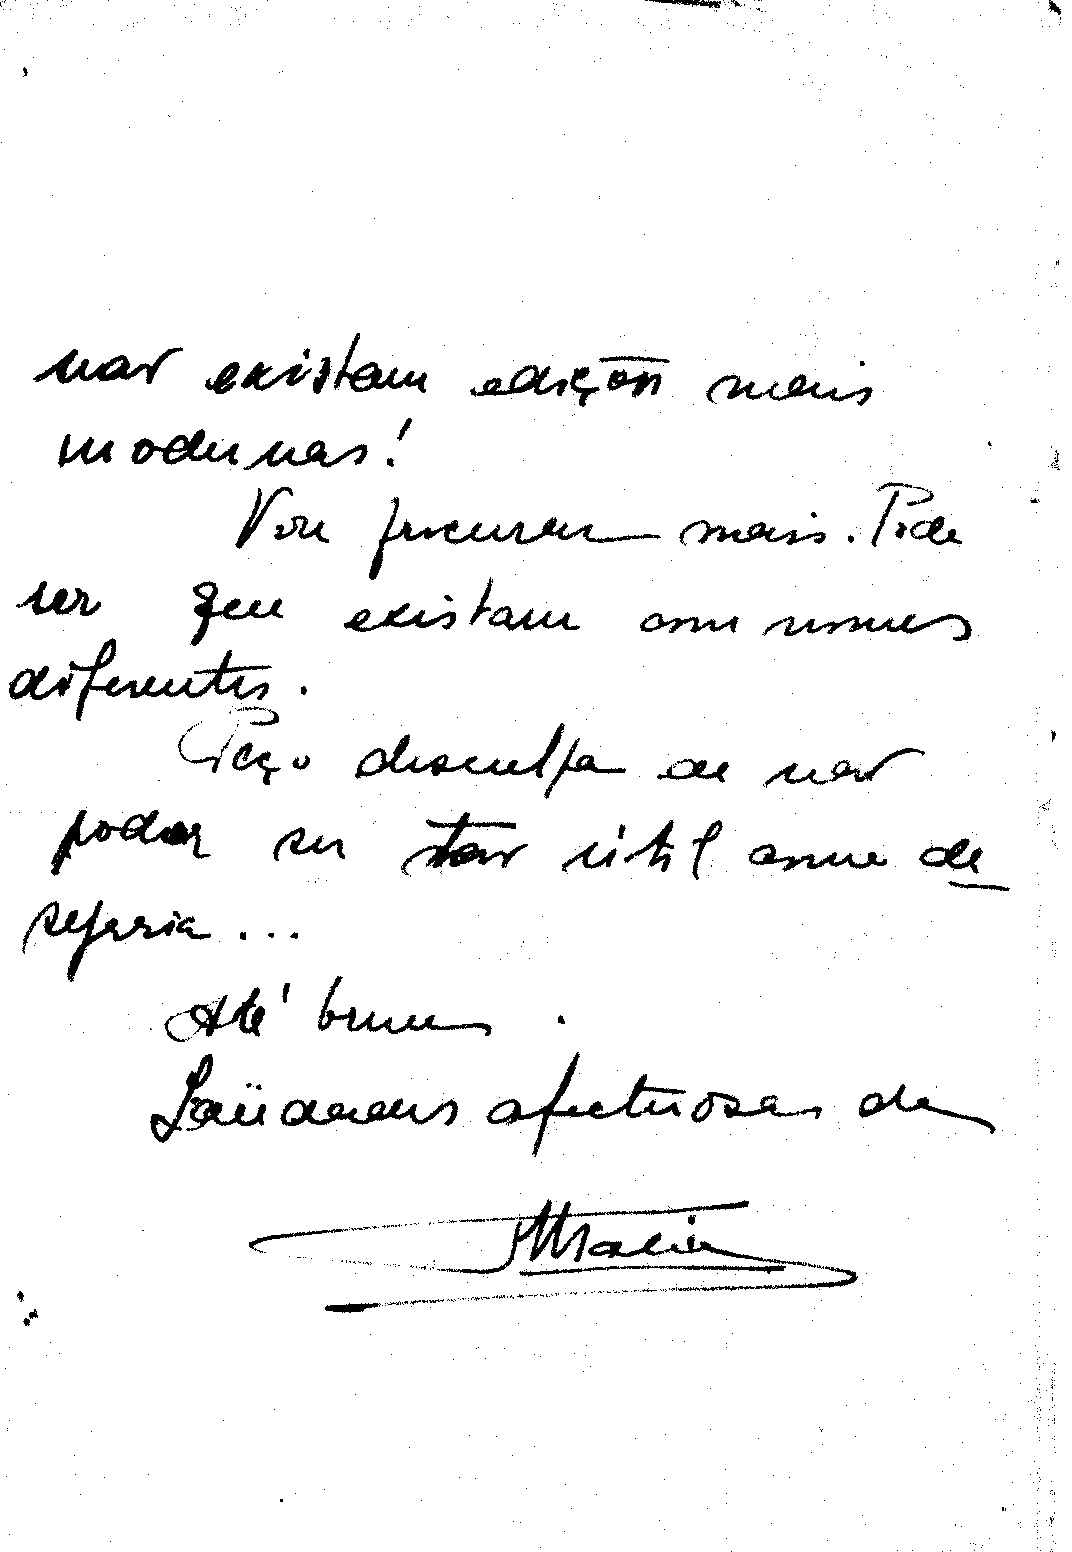 não existam edições mais
modernas!
Vou procurar mais. Pode
ser que existam com nomes
diferentes.
Peço desculpa de não
poder ser tão útil como de
sejaria...
Até breve.
Saüdades afectuosas da